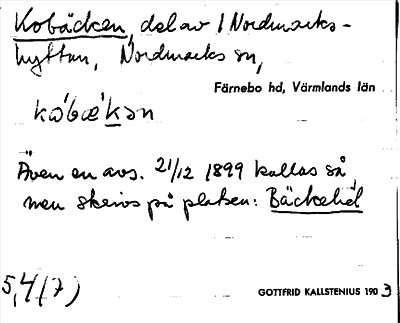 Kobäcken, del av 1 Nordmarks-
hyttan, Nordmarks sn,
Färnebo hd, Värmlands län
kɷ̀bækən
Även en avs. 21/12 1899 kallas så,
men skrivs på platsen: Bäckehel
5,4(7)
GOTTFRID KALLSTENIUS 1903